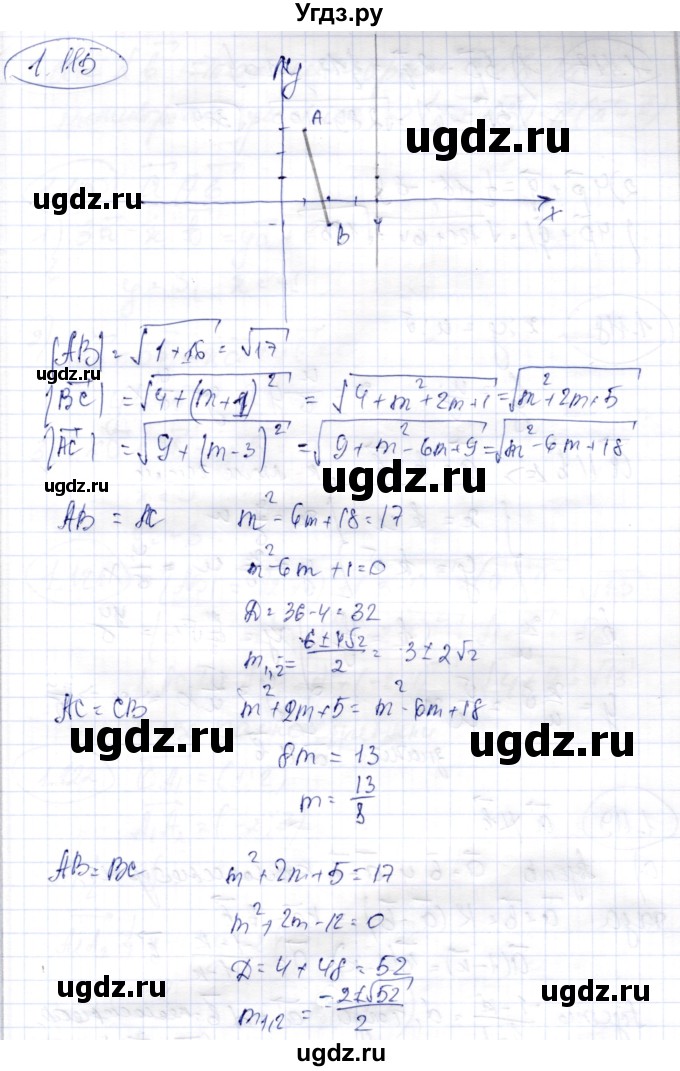 Угдз.ру
1.115
y
A
ugdz.ru
ugdz.ru
B
x
|AB| = √(1+16) = √17
|BC| = √(4+(m+1)²) = √(4+m²+2m+1) = √(m²+2m+5)
|AC| = √(9+(m-3)²) = √(9+m²-6m+9) = √(m²-6m+18)
ugdz.ru
ugdz.ru
AB = AC m²-6m+18=17
m²-6m+1=0
D=36-4=32
m₁,₂ = (6±4√2)/2 = 3±2√2
AC=CB m²+2m+5=m²-6m+18
ugdz.ru
ugdz.ru
8m = 13
m = 13/8
AB=BC m²+2m+5=17
m²+2m-12=0
D=4+48=52
ugdz.ru
ugdz.ru
m₁,₂ = (-2±√52)/2
ugdz.ru